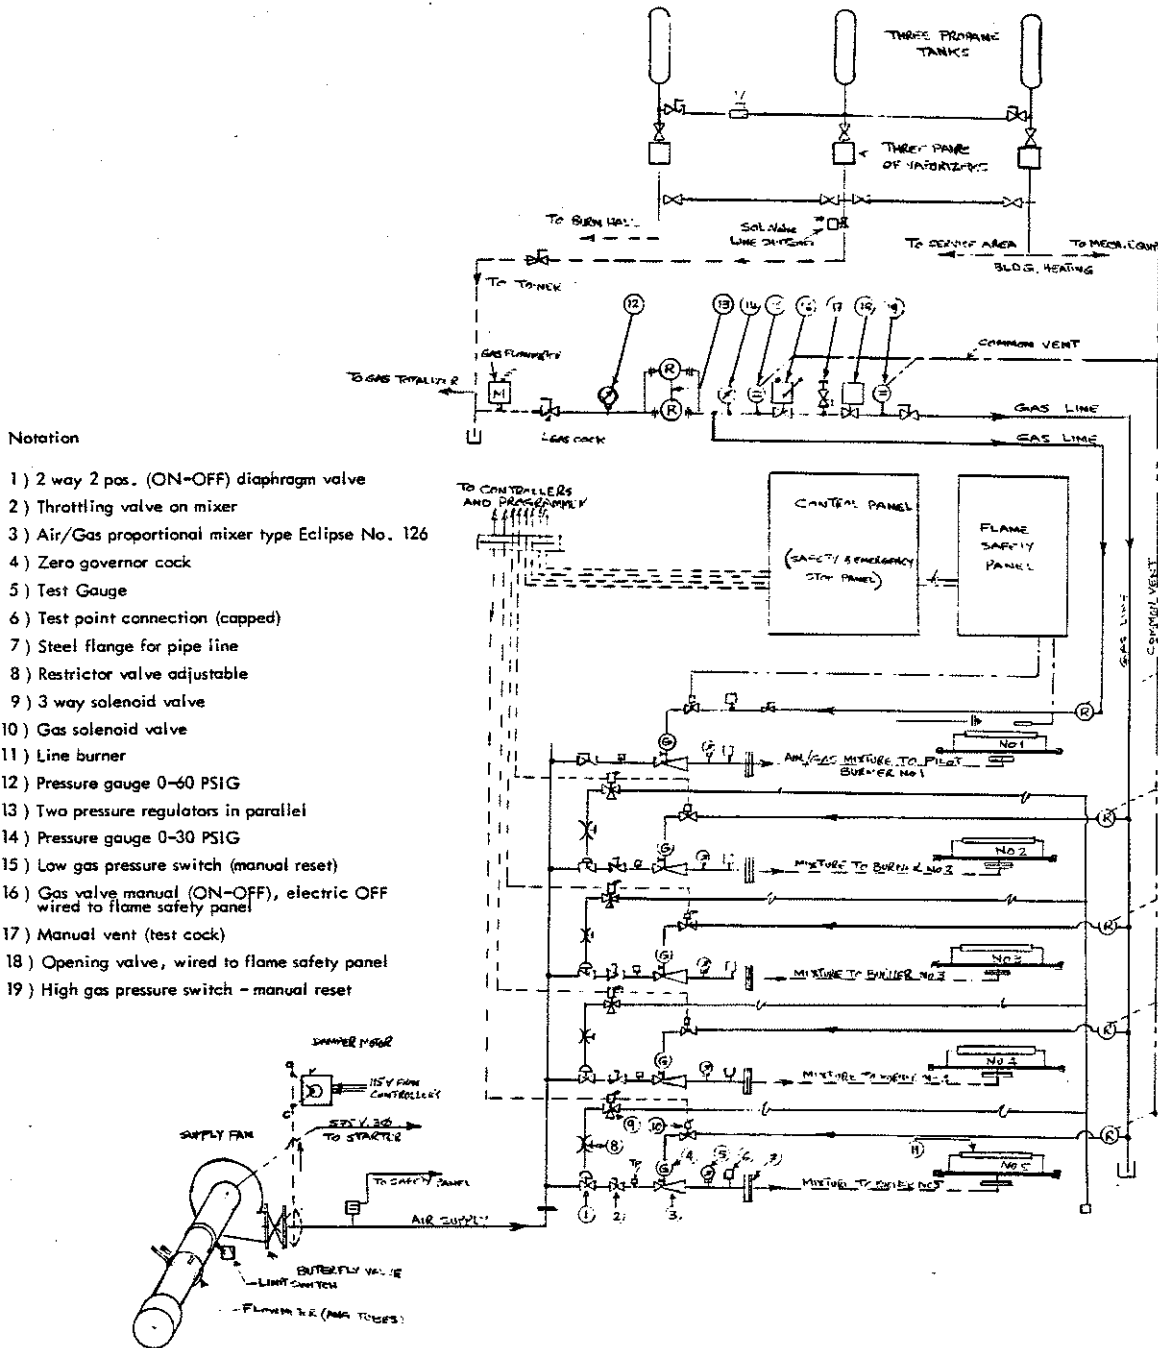 THREE PROPANE
TANKS
THREE PAIRS
OF VAPORIZERS
TO BURN HALL
SOL. VALVE
LINE
TO SERVICE AREA
TO MECH. EQUIP
BLDG. HEATING
TO
12
13
14
16
17
18
19
COMMON VENT
GAS FLOWMETE
TO GAS TOTALIZER
M
R
R
GAS COCK
GAS LINE
GAS LINE
Notation
1 ) 2 way 2 pos. (ON-OFF) diaphragm valve
2 ) Throttling valve on mixer
3 ) Air/Gas proportional mixer type Eclipse No. 126
4 ) Zero governor cock
5 ) Test Gauge
6 ) Test point connection (capped)
7 ) Steel flange for pipe line
8 ) Restrictor valve adjustable
9 ) 3 way solenoid valve
10 ) Gas solenoid valve
11 ) Line burner
12 ) Pressure gauge 0-60 PSIG
13 ) Two pressure regulators in parallel
14 ) Pressure gauge 0-30 PSIG
15 ) Low gas pressure switch (manual reset)
16 ) Gas valve manual (ON-OFF), electric OFF
wired to flame safety panel
17 ) Manual vent (test cock)
18 ) Opening valve, wired to flame safety panel
19 ) High gas pressure switch - manual reset
TO CONTROLLERS
AND PROGRAMMER
CONTROL PANEL
(SAFETY & EMERGENCY
STOP PANEL)
FLAME
SAFETY
PANEL
GAS LINE
COMMON VENT
R
G
No 1
AIR/GAS MIXTURE TO PILOT
BURNER No 1
R
G
No 2
MIXTURE TO BURNER No 3
R
G
No 3
MIXTURE TO BURNER No 3
R
G
No 4
MIXTURE TO
R
G
No 5
MIXTURE TO BURNER No 5
9
10
11
8
4
5
6
7
1
2
3
DAMPER MOTOR
115 V FROM
CONTROLLERS
575 V. 3Ø
TO STARTER
SUPPLY FAN
TO SAFETY PANEL
AIR SUPPLY
BUTERFLY VALVE
LIMIT SWITCH
TUBES)